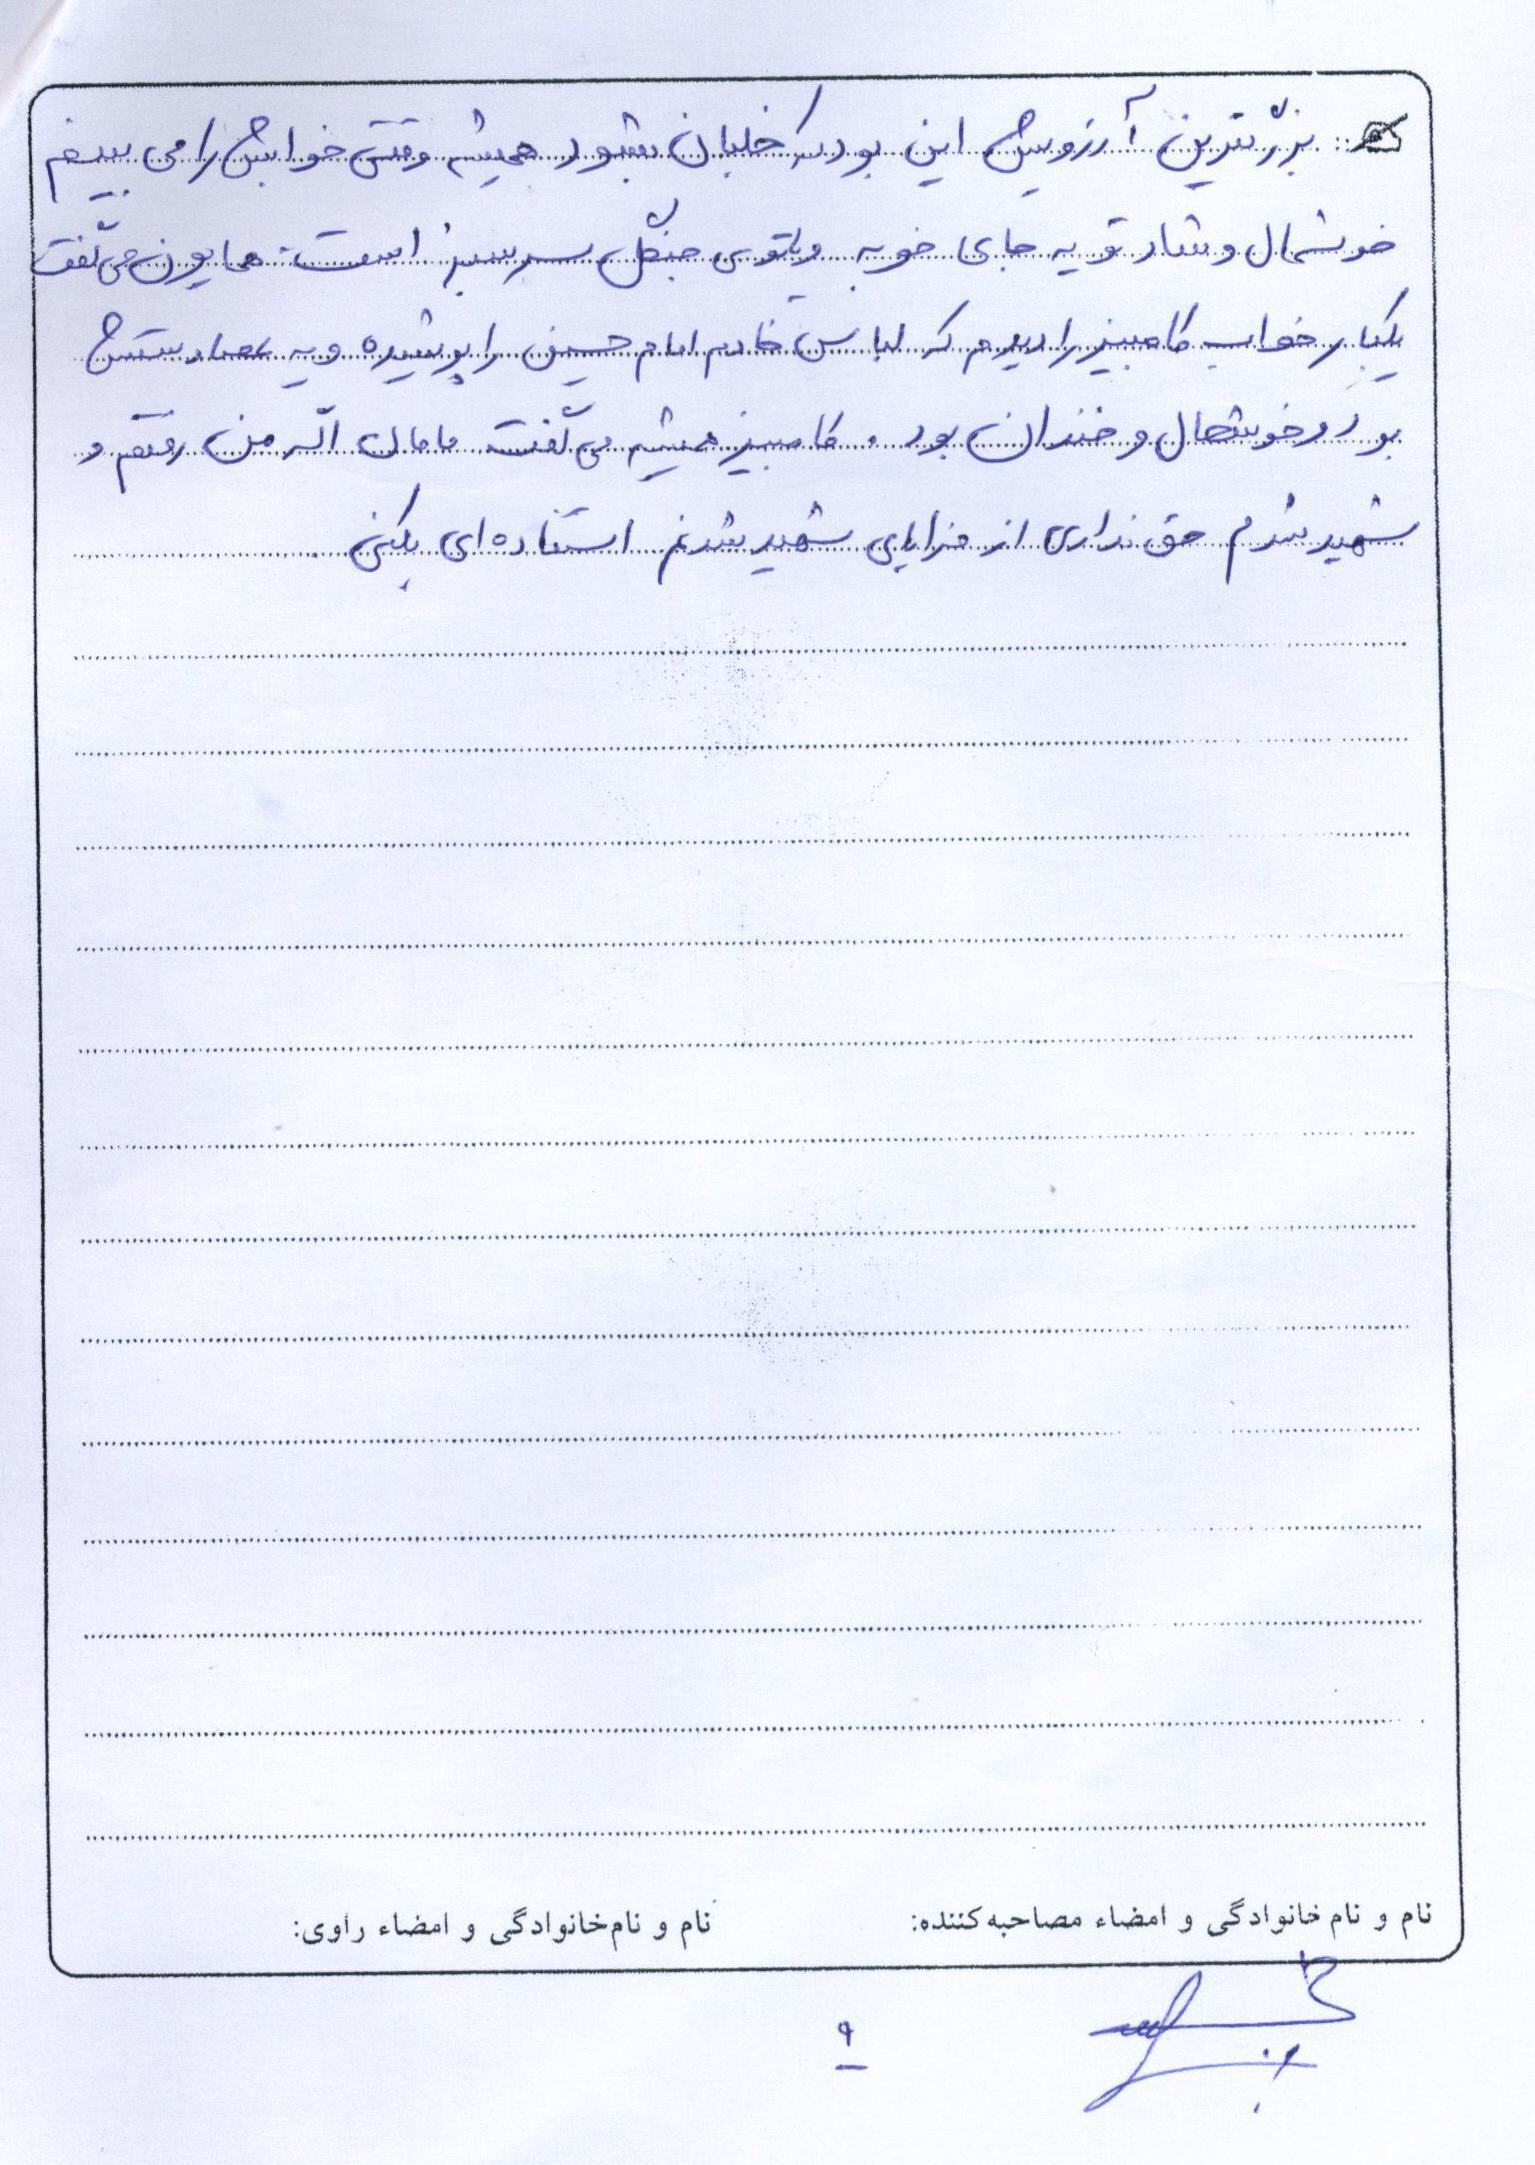 بزرگترین آرزویش این بود که خلبان بشود همیشه وقتی خوابش را می بینم
خوشحال و شاد تو یه جای خوبه و یا توی جنگل سرسبز است. همایون می گفت
یکبار خواب کامبیز را دیدم که لباس خادم امام حسین را پوشیده و یه عصا دستش
بود و خوشحال و خندان بود. کامبیز همیشه می گفت مامان اگه من رفتم و
شهید شدم حق نداری از مزایای شهید شدنم استفاده ای بکنی.
نام و نام خانوادگی و امضاء مصاحبه کننده:
نام و نام خانوادگی و امضاء راوی:
۹